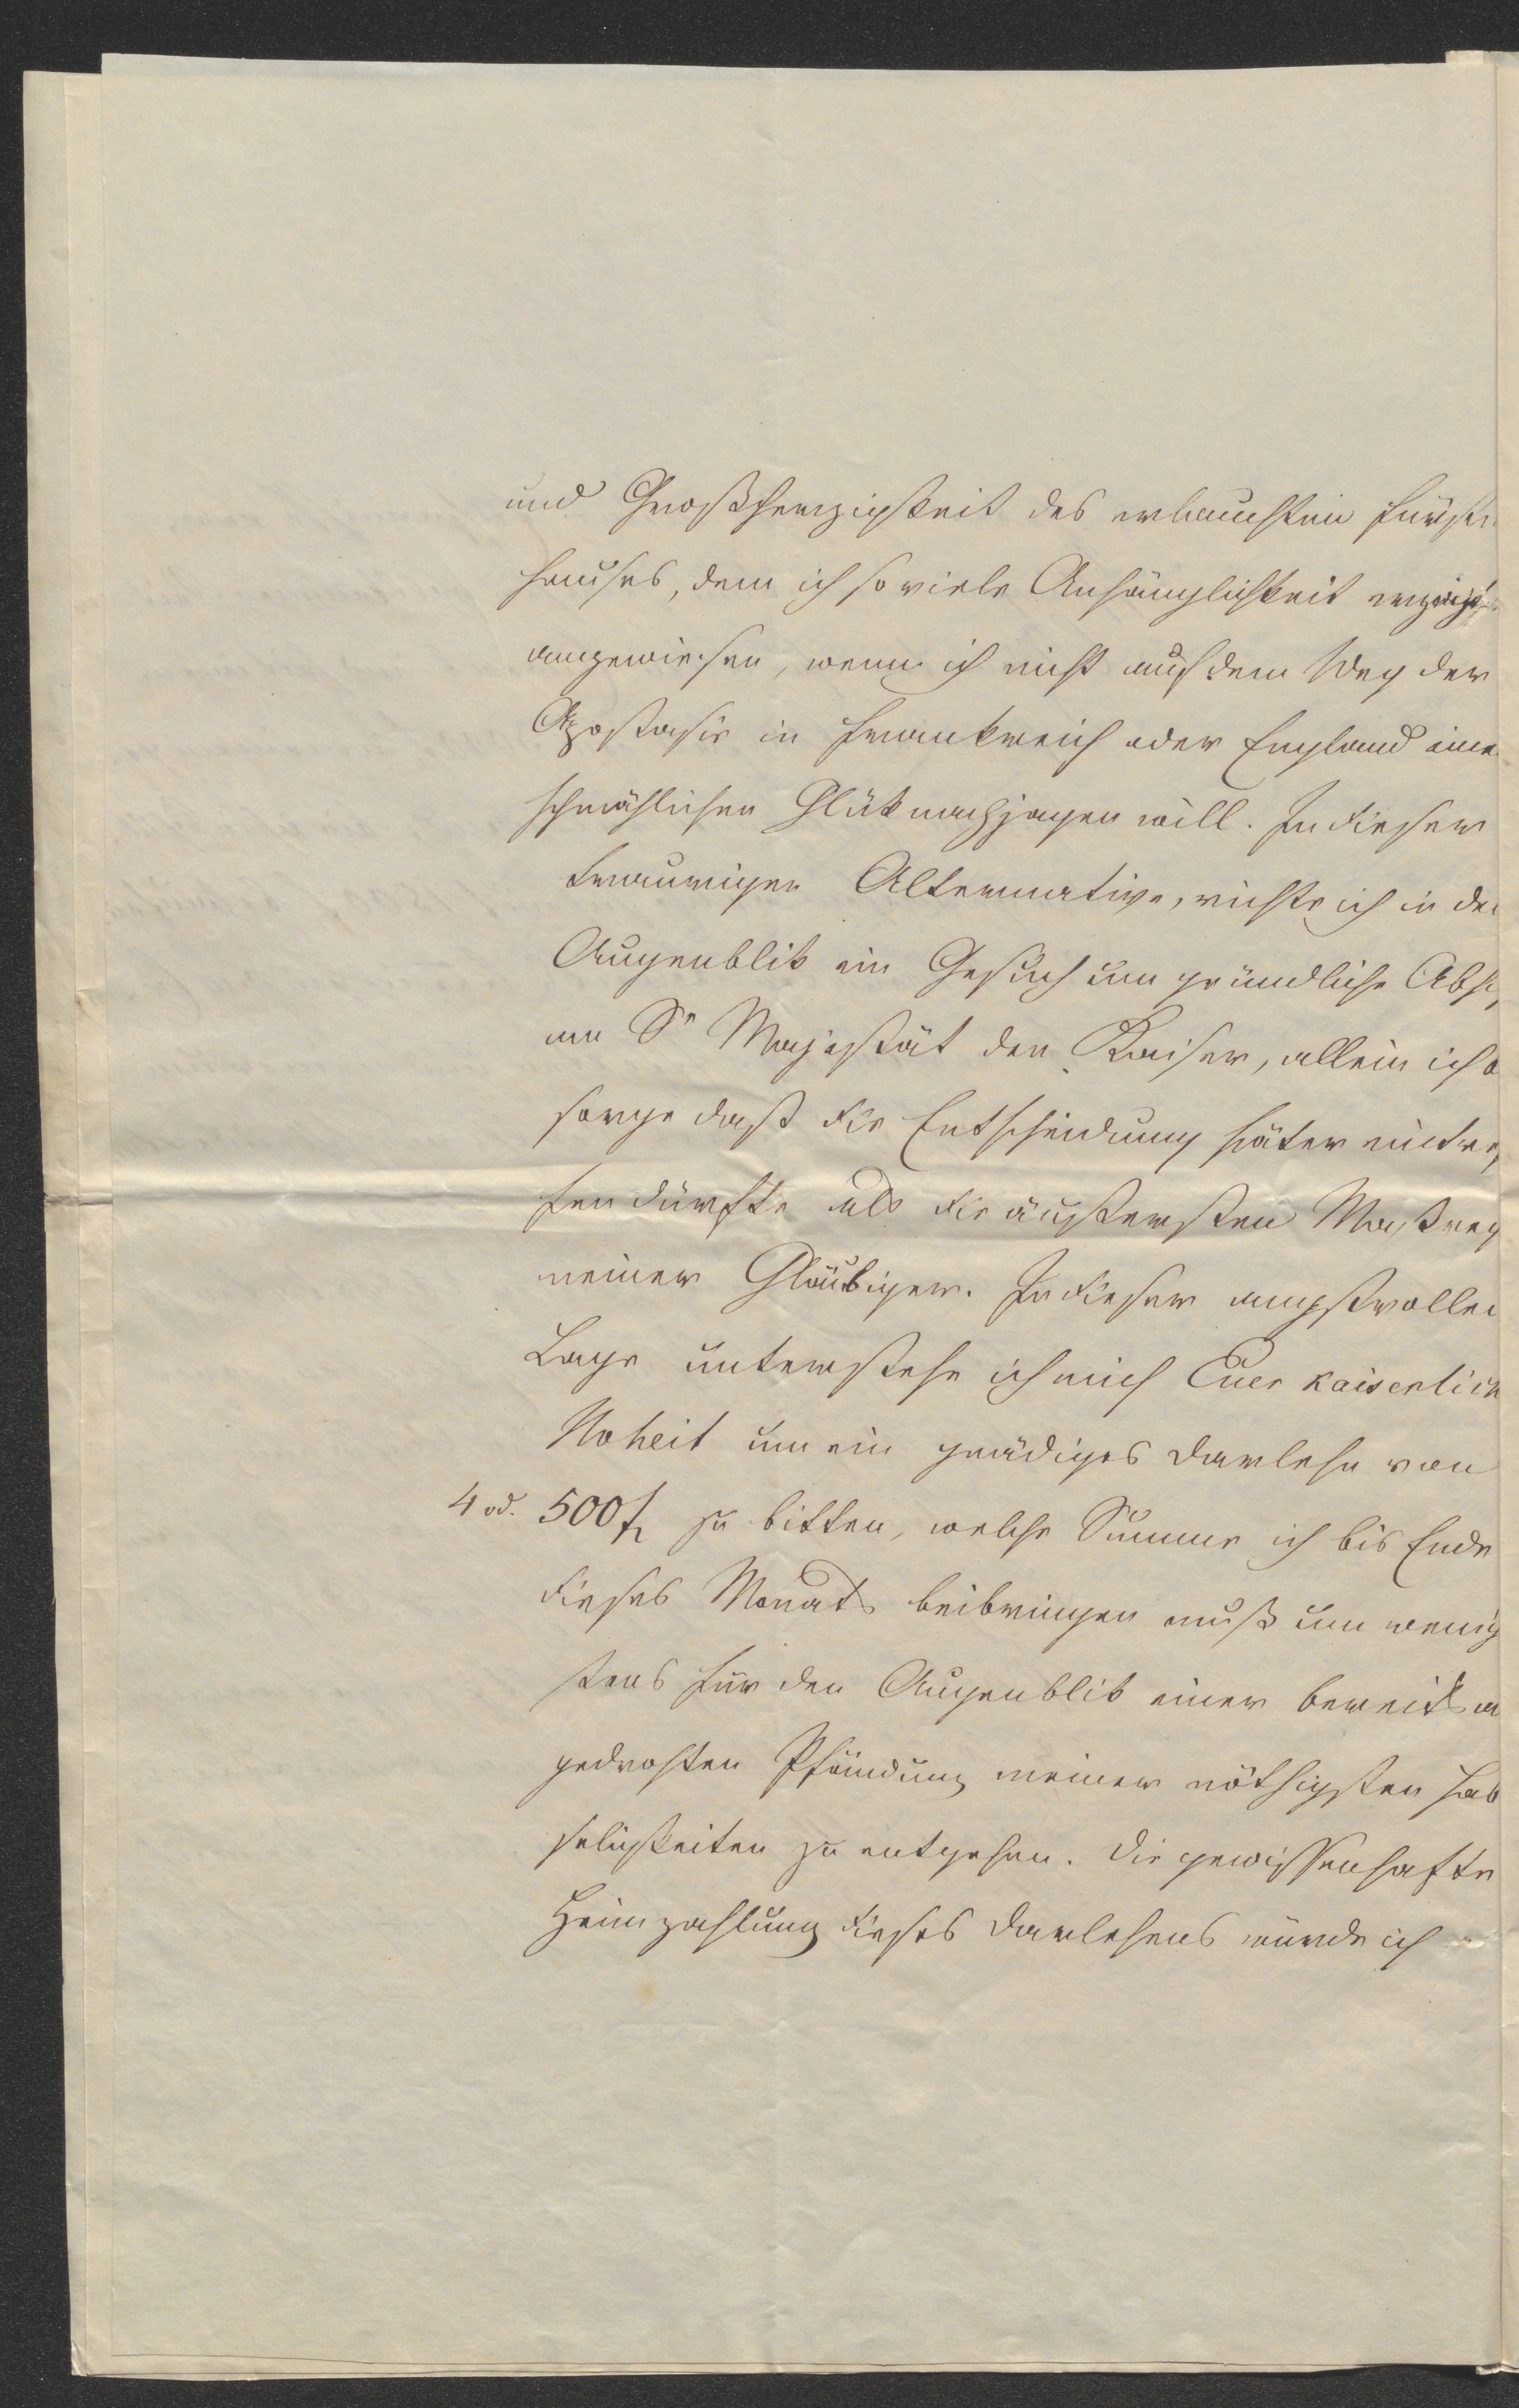 und Großherzigkeit des erlauchten Fürsten
hauses, dem ich so viele Anhänglichkeit erzeigt
angewiesen, wenn ich nicht auf dem Weg der
Apostasie in Frankreich oder England eine
schmählichen Glük nachjagen will. In dieser
traurigen Alternative, richte ich in de
Augenblik ein Gesuch um gründliche Abh
an Sr Majestät den Kaiser, allein ich b
sorge daß die Entscheidung später eintre
fen dürfte als die äußersten Maßreg
meiner Gläubiger. In dieser angstvollen
Lage unterstehe ich mich Euer kaiserlich
Hoheit um ein gnädiges Darlehn von
4 od. 500 fl zu bitten, welche Summe ich bis Ende
dieses Monats beibringen muß um wenig
stens für den Augenblik einer bereits a
gedrohten Pfändung meiner nöthigsten Hab
seligkeiten zu entgehen. Die gewissenhafte
Heimzahlung dieses Darlehens würde ich